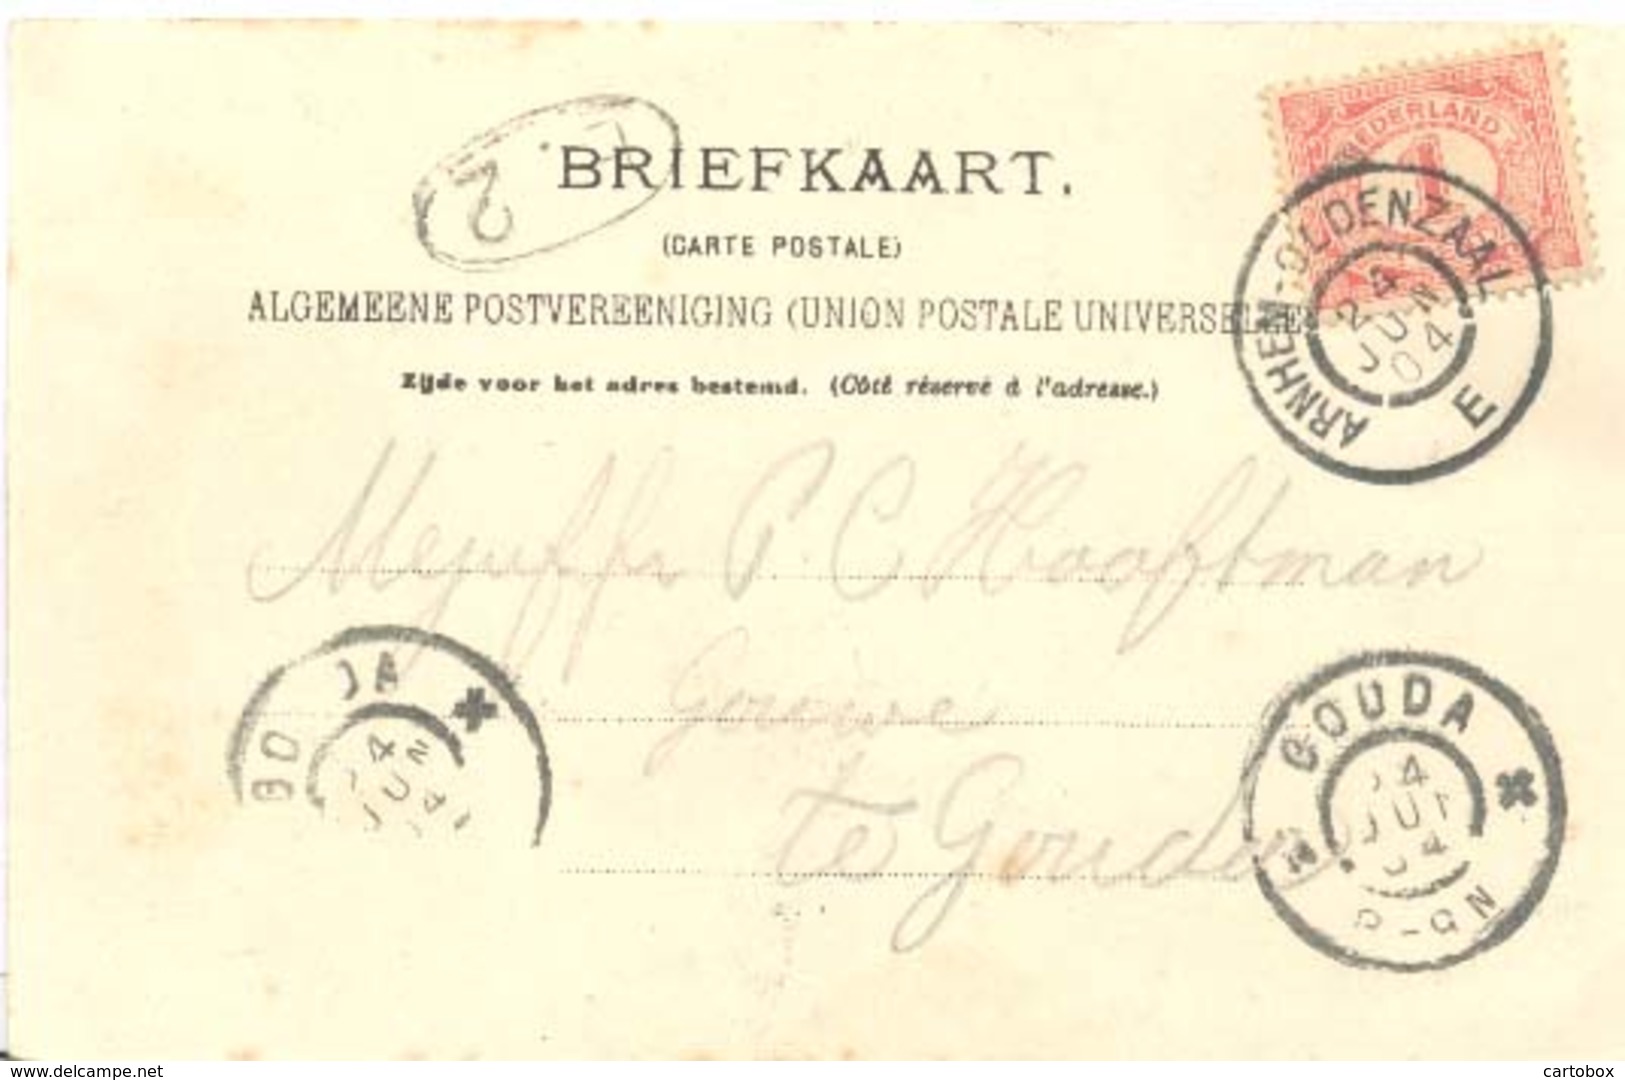 BRIEFKAART.
2
(CARTE POSTALE)
ALGEMEENE POSTVEREENIGING (UNION POSTALE UNIVERSELLE
Zijde voor het adres bestemd. (Côté réservé à l'adresse.)
NEDERLAND
1
ARNHEM-OLDENZAAL
24
JUN
04
E
Mejuffr P. C. Hooftman
Gouwe
te Gouda
GOUDA
4
JUN
04
GOUDA
4
JUN
04
8-9N
www.delcampe.net
cartobox